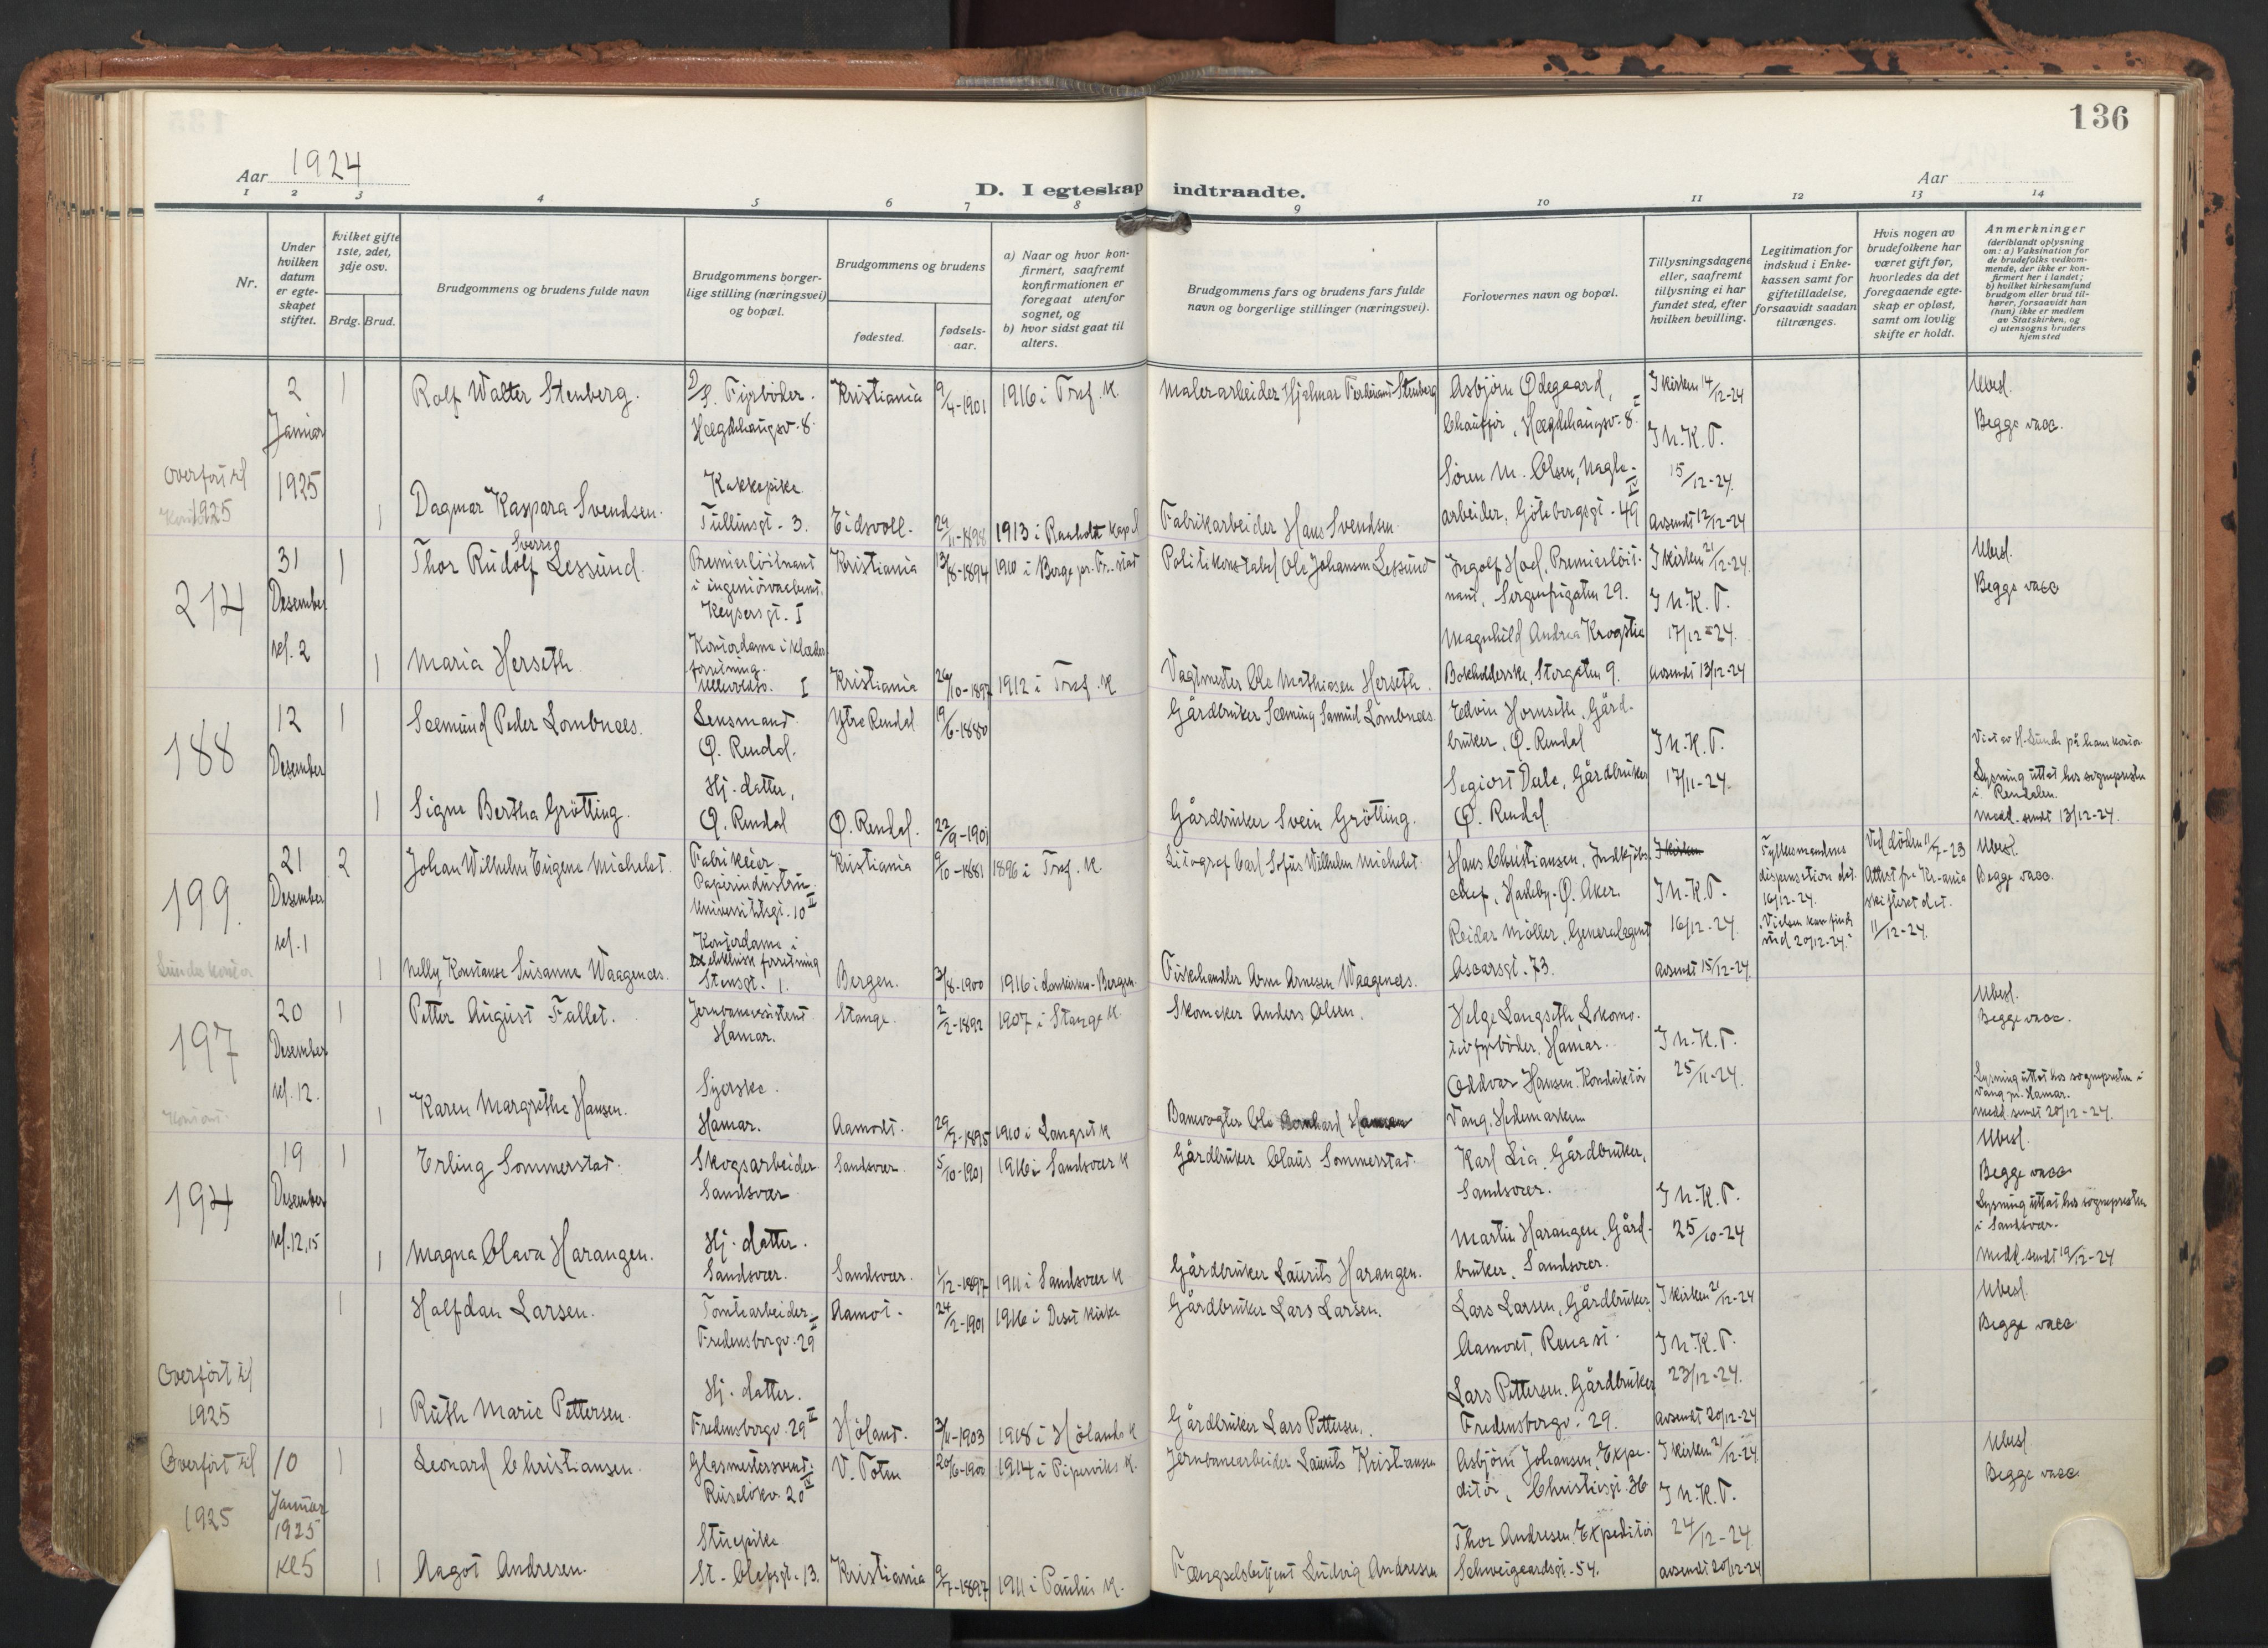 136
Aar 1924
D. I egteskap indtraadte.
Aar
1 2 3 4 5 6 7 8 9 10 11 12 13 14
Nr.
Under hvilken datum er egteskapet stiftet.
Hvilket gifte 1ste, 2det, 3dje osv.
Brdg. Brud.
Brudgommens og brudens fulde navn
Brudgommens borgerlige stilling (næringsvei) og bopæl.
Brudgommens og brudens
fødested.
fødselsaar.
a) Naar og hvor konfirmert, saafremt konfirmationen er foregaat utenfor sognet, og
b) hvor sidst gaat til alters.
Brudgommens fars og brudens fars fulde navn og borgerlige stillinger (næringsvei).
Forlovernes navn og bopæl.
Tillysningsdagene eller, saafremt tillysning ei har fundet sted, efter hvilken bevilling.
Legitimation for indskud i Enkekassen samt for giftetilladelse, forsaavidt saadan tiltrænges.
Hvis nogen av brudefolkene har været gift før, hvorledes da det foregaaende egteskap er opløst, samt om lovlig skifte er holdt.
Anmerkninger
(deriblandt oplysning om: a) Vaksination for de brudefolks vedkommende, der ikke er konfirmert her i landet; b) hvilket kirkesamfund brudgom eller brud tilhører, forsaavidt han (hun) ikke er medlem av Statskirken, og c) utensogns bruders hjemsted
Overført til 1925
2 Januar 1925
1
Rolf Walter Stenberg.
Fyrbøder. Hægdehaugsv. 8.
Kristiania
9/4-1901
1916 i Tref. K.
Malerarbeider Hjalmar Ferdinand Stenberg
Asbjørn Ødegaard, Chauffør, Hægdehaugsv. 8.
I kirken 14/12-24
I N.K.T. 15/12-24.
avsendt 12/12-24
Ubesl.
Begge vacc.
1
Dagmar Kaspara Svendsen.
Kokkepike Tullinsgt. 3.
Eidsvoll.
29/11-1898
1913 i Raaholt Kapel
Fabrikarbeider Hans Svendsen
Søren M. Olsen, Naglearbeider, Göteborggt. 49 IV
214
31 Desember kl. 2
1
Thor Rudolf Sverre Lessund.
Premierløitnant i ingeniørvaabnet. Keysersgt. I
Kristiania
13/8-1894
1910 i Borge pr. Fr.stad
Politikonstabel Ole Johansen Lessund
Ingolf Hod, Premierløitnant, Sorgenfrigaten 29.
I kirken 21/12-24.
I N.K.T. 17/12-24.
avsendt 13/12-24
Ubesl.
Begge vacc
1
Maria Herseth
Kontordame i klædesforretning. Ullevoldsv. I
Kristiania
26/10-1897
1912 i Tref. K
Vagtmester Ole Mathiasen Herseth.
Magnhild Andrea Krogstie Bokholderske, Storgaten 9.
188
12 Desember
1
Sæmund Peder Lombnæs.
Lensmand. Ø. Rendal.
Ytre Rendal
19/6-1880
Gårdbruker Sæming Samud Lombnæs.
Edvin Hornseth, Gårdbruker, Ø. Rendal
I N.K.T. 17/11-24.
Viet av H. Lunde på hans kontor
Lysning uttat hos sognepresten i Rendalen.
Medd. sendt 13/12-24.
1
Signe Bertha Grøtting.
Hj. datter, Ø. Rendal
Ø. Rendal.
22/9-1901
Gårdbruker Svein Grøtting.
Segiort Dale, Gårdbruker Ø. Rendal.
199.
21 Desember kl. 1
2
Johan Wilhelm Eugene Michelet.
Fabrikeier Papirindustri Universitetsgt. 10 II
Kristiania
9/10-1881
1896 i Tref. K.
Litograf Carl Sofus Wilhelm Michelet.
Hans Christiansen, Indkjøbschef, Hasleby. Ø. Aker.
I kirken
I N.K.T. 16/12-24.
avsendt 15/12-24.
Fylkesmandens dispensation dat. 16/12-24. "Vielsen kan finde sted 20/12-24."
Ved døden 11/7-23 Attest fra Kr-ania skifteret dat. 11/12-24.
Ubesl.
Begge vacc.
Lundes kontor
1
Nelly Konstanse Susanne Waagenæs.
Kontordame i elektrisk forretning Stensgt. 1.
Bergen.
3/8-1900
1916 i Domkirken - Bergen.
Fiskehandler Arne Arnesen Waagenæs.
Reidar Møller, Generalagent Oscarsgt. 73.
197
20 Desember kl. 12.
1
Petter August Fallet.
Jernbaneassistent Hamar.
Stange.
2/2-1892
1907 i Stange K.
Skomaker Anders Olsen.
Helge Langseth, Lokomotivfyrbøder, Hamar.
I N.K.T. 25/11-24.
Ubesl.
Begge vacc.
Lysning uttat hos sognepresten i Vang pr. Hamar.
Medd. sendt 20/12-24.
Kontort.
1
Karen Margrethe Hansen.
Syerske. Hamar.
Aamodt.
29/7-1895
1910 i Langset K
Banevogter Ole Bernhard Hansen
Oddvar Hansen. Konduktør Vang, Hedemarken
194
19 Desember kl. 12,15
1
Erling Sommerstad.
Skogsarbeider Sandsvær
Sandsvær.
5/10-1901
1916 i Sandsvær K
Gårdbruker Claus Sommerstad.
Karl Lia, Gårdbruker, Sandsvær.
I N.K.T. 25/10-24
Ubesl.
Begge vacc
Lysning uttat hos sognepresten i Sandsvær.
Medd. sendt 19/12-24
1
Magna Olava Harangen.
Hj. datter. Sandsvær.
Sandsvær.
1/12-1897
1911 i Sandsvær K
Gårdbruker Laurits Harangen.
Martin Harangen, Gårdbruker, Sandsvær.
Overført til 1925
1
Halfdan Larsen.
Tomtearbeider. Fredensborgv. 29 II
Aamot.
24/2-1901
1916 i Deset Kirke
Gårdbruker Lars Larsen.
Lars Larsen, Gårdbruker, Aamodt, Rena st.
I kirken 21/12-24
I N.K.T. 23/12-24.
avsendt 20/12-24
Ubesl.
Begge vacc.
1
Ruth Marie Pettersen.
Hj. datter. Fredensborgv. 29 II
Høland.
3/11-1903
1918 i Hølands K
Gårdbruker Lars Pettersen.
Lars Pettersen. Gårdbruker Fredensborgv. 29.
Overført til 1925
10 Januar 1925 Kl 5
1
Leonard Christiansen.
Glasmestersvend. Ruseløkv. 20 IV
V. Toten
20/6-1900
1914 i Piperviks K.
Jernbanearbeider Laurits Kristiansen
Asbjørn Johansen, Expeditør, Christiesgt. 36
I kirken 21/12-24
I N.K.T. 24/12-24
avsendt 20/12-24
Ubesl.
Begge vacc.
1
Aagot Andresen.
Stuepike St. Olafsgt. 13.
Kristiania
9/7-1897
1911 i Paulus K.
Fængselsbetjent Ludvig Andresen
Thor Andresen, Expeditør Schweigaardsgt. 54.